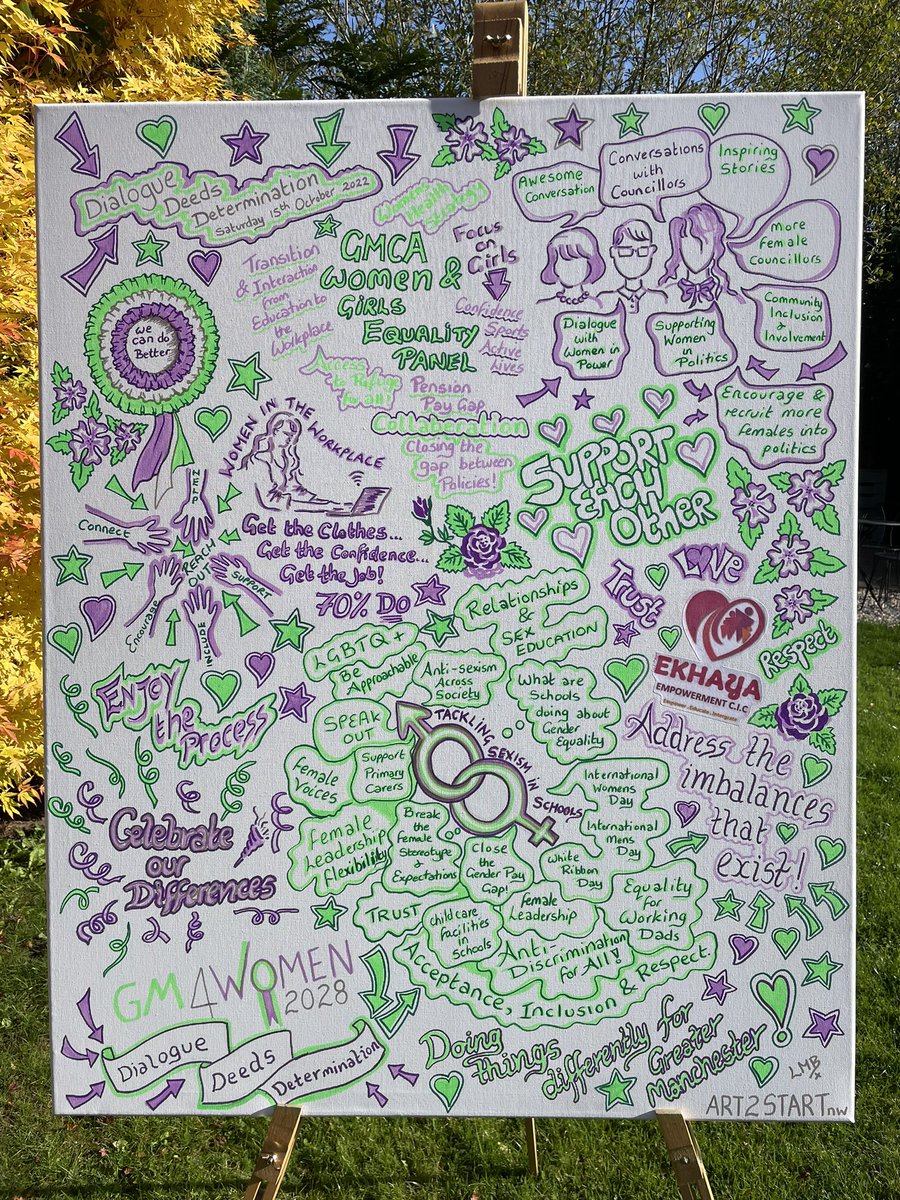 Dialogue
Deeds
Determination
Saturday 15th October 2022
Womens
Health
Strategy
Focus
on
Girls
Confidence
Sports
Active
Lives
Transition
& Interaction
from
Education to
the
Workplace
GMCA
Women &
Girls
Equality
Panel
Access
to Refuge
for all!
Pension
Pay Gap
Collaberation
Closing the
gap between
Policies!
Awesome
Conversation
Conversations
with
Councillors
Inspiring
Stories
More
Female
Councillors
Community
Inclusion
&
Involvement
Dialogue
with
Women in
Power
Supporting
Women
in
Politics
Encourage &
recruit more
females into
politics
We
can do
Better
Women in the
Workplace
Get the Clothes...
Get the Confidence...
Get the Job!
70% DO
Support
Each
Other
Help
Connect
Reach
Out
Support
Encourage
Include
Love
Trust
Respect
EKHAYA
EMPOWERMENT C.I.C
Empower . Educate . Integrate
Enjoy
the
Process
Relationships
&
Sex
Education
LGBTQ+
Be
Approachable
Anti-sexism
Across
Society
What are
Schools
doing about
Gender
Equality
Speak
Out
Tackling
Sexism in
Schools
Female
Voices
Support
Primary
Carers
International
Womens
Day
International
Mens
Day
Address the
imbalances
that
exist!
Celebrate
our
Differences
Female
Leadership
Flexibility
Break
the
Female
Stereotype
&
Expectations
Close
the
Gender Pay
Gap!
White
Ribbon
Day
Trust
Child care
facilities
in
schools
Female
Leadership
Equality
for
Working
Dads
Anti-
Discrimination
for All!
Acceptance, Inclusion & Respect.
GM4Women
2028
Dialogue
Deeds
Determination
Doing
Things
differently for
Greater
Manchester
LMB
x
ART2STARTnw